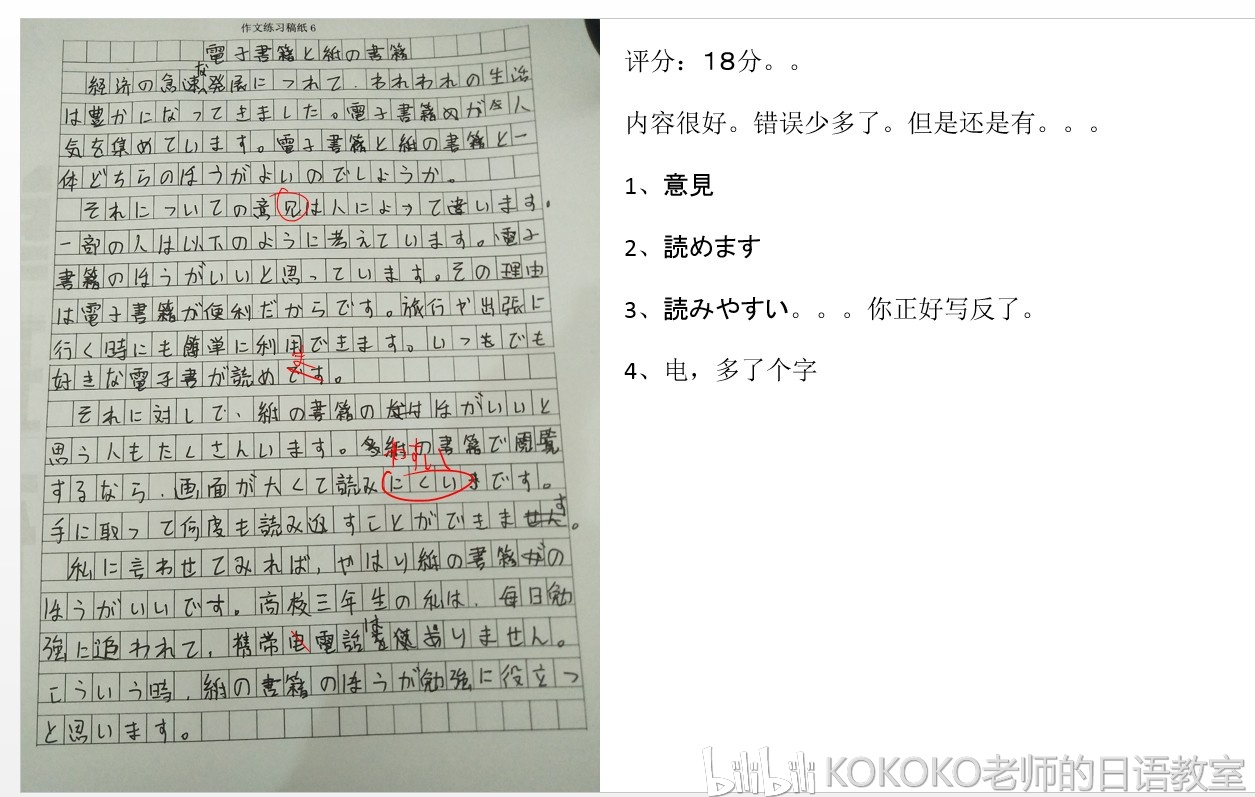 作文练习稿纸 6
電子書籍と紙の書籍
経済の急速な発展につれて、われわれの生活
は豊かになってきました。電子書籍が人
気を集めています。電子書籍と紙の書籍と一
体どちらのほうがよいのでしょうか。
それについての意は人によって違います。
一部の人は以下のように考えています。電子
書籍のほうがいいと思っています。その理由
は電子書籍が便利だからです。旅行や出張に
行く時にも簡単に利用できます。いつもでも
好きな電子書が読めです。
ま
それに対して、紙の書籍のほがいいと
思う人もたくさんいます。紙の書籍で閲覧
やすい
するなら、画面が大くて読みにくいです。
手に取って何度も読み返すことができます。
私に言わせてみれば、やはり紙の書籍の
ほうがいいです。高校三年生の私は、毎日勉
強に追われて、携帯电電話はありません。
こういう時、紙の書籍のほうが勉強に役立つ
と思います。
评分：18分。。
内容很好。错误少多了。但是还是有。。。
1、意見
2、読めます
3、読みやすい。。。你正好写反了。
4、电，多了个字
bilibili KOKOKO老师的日语教室